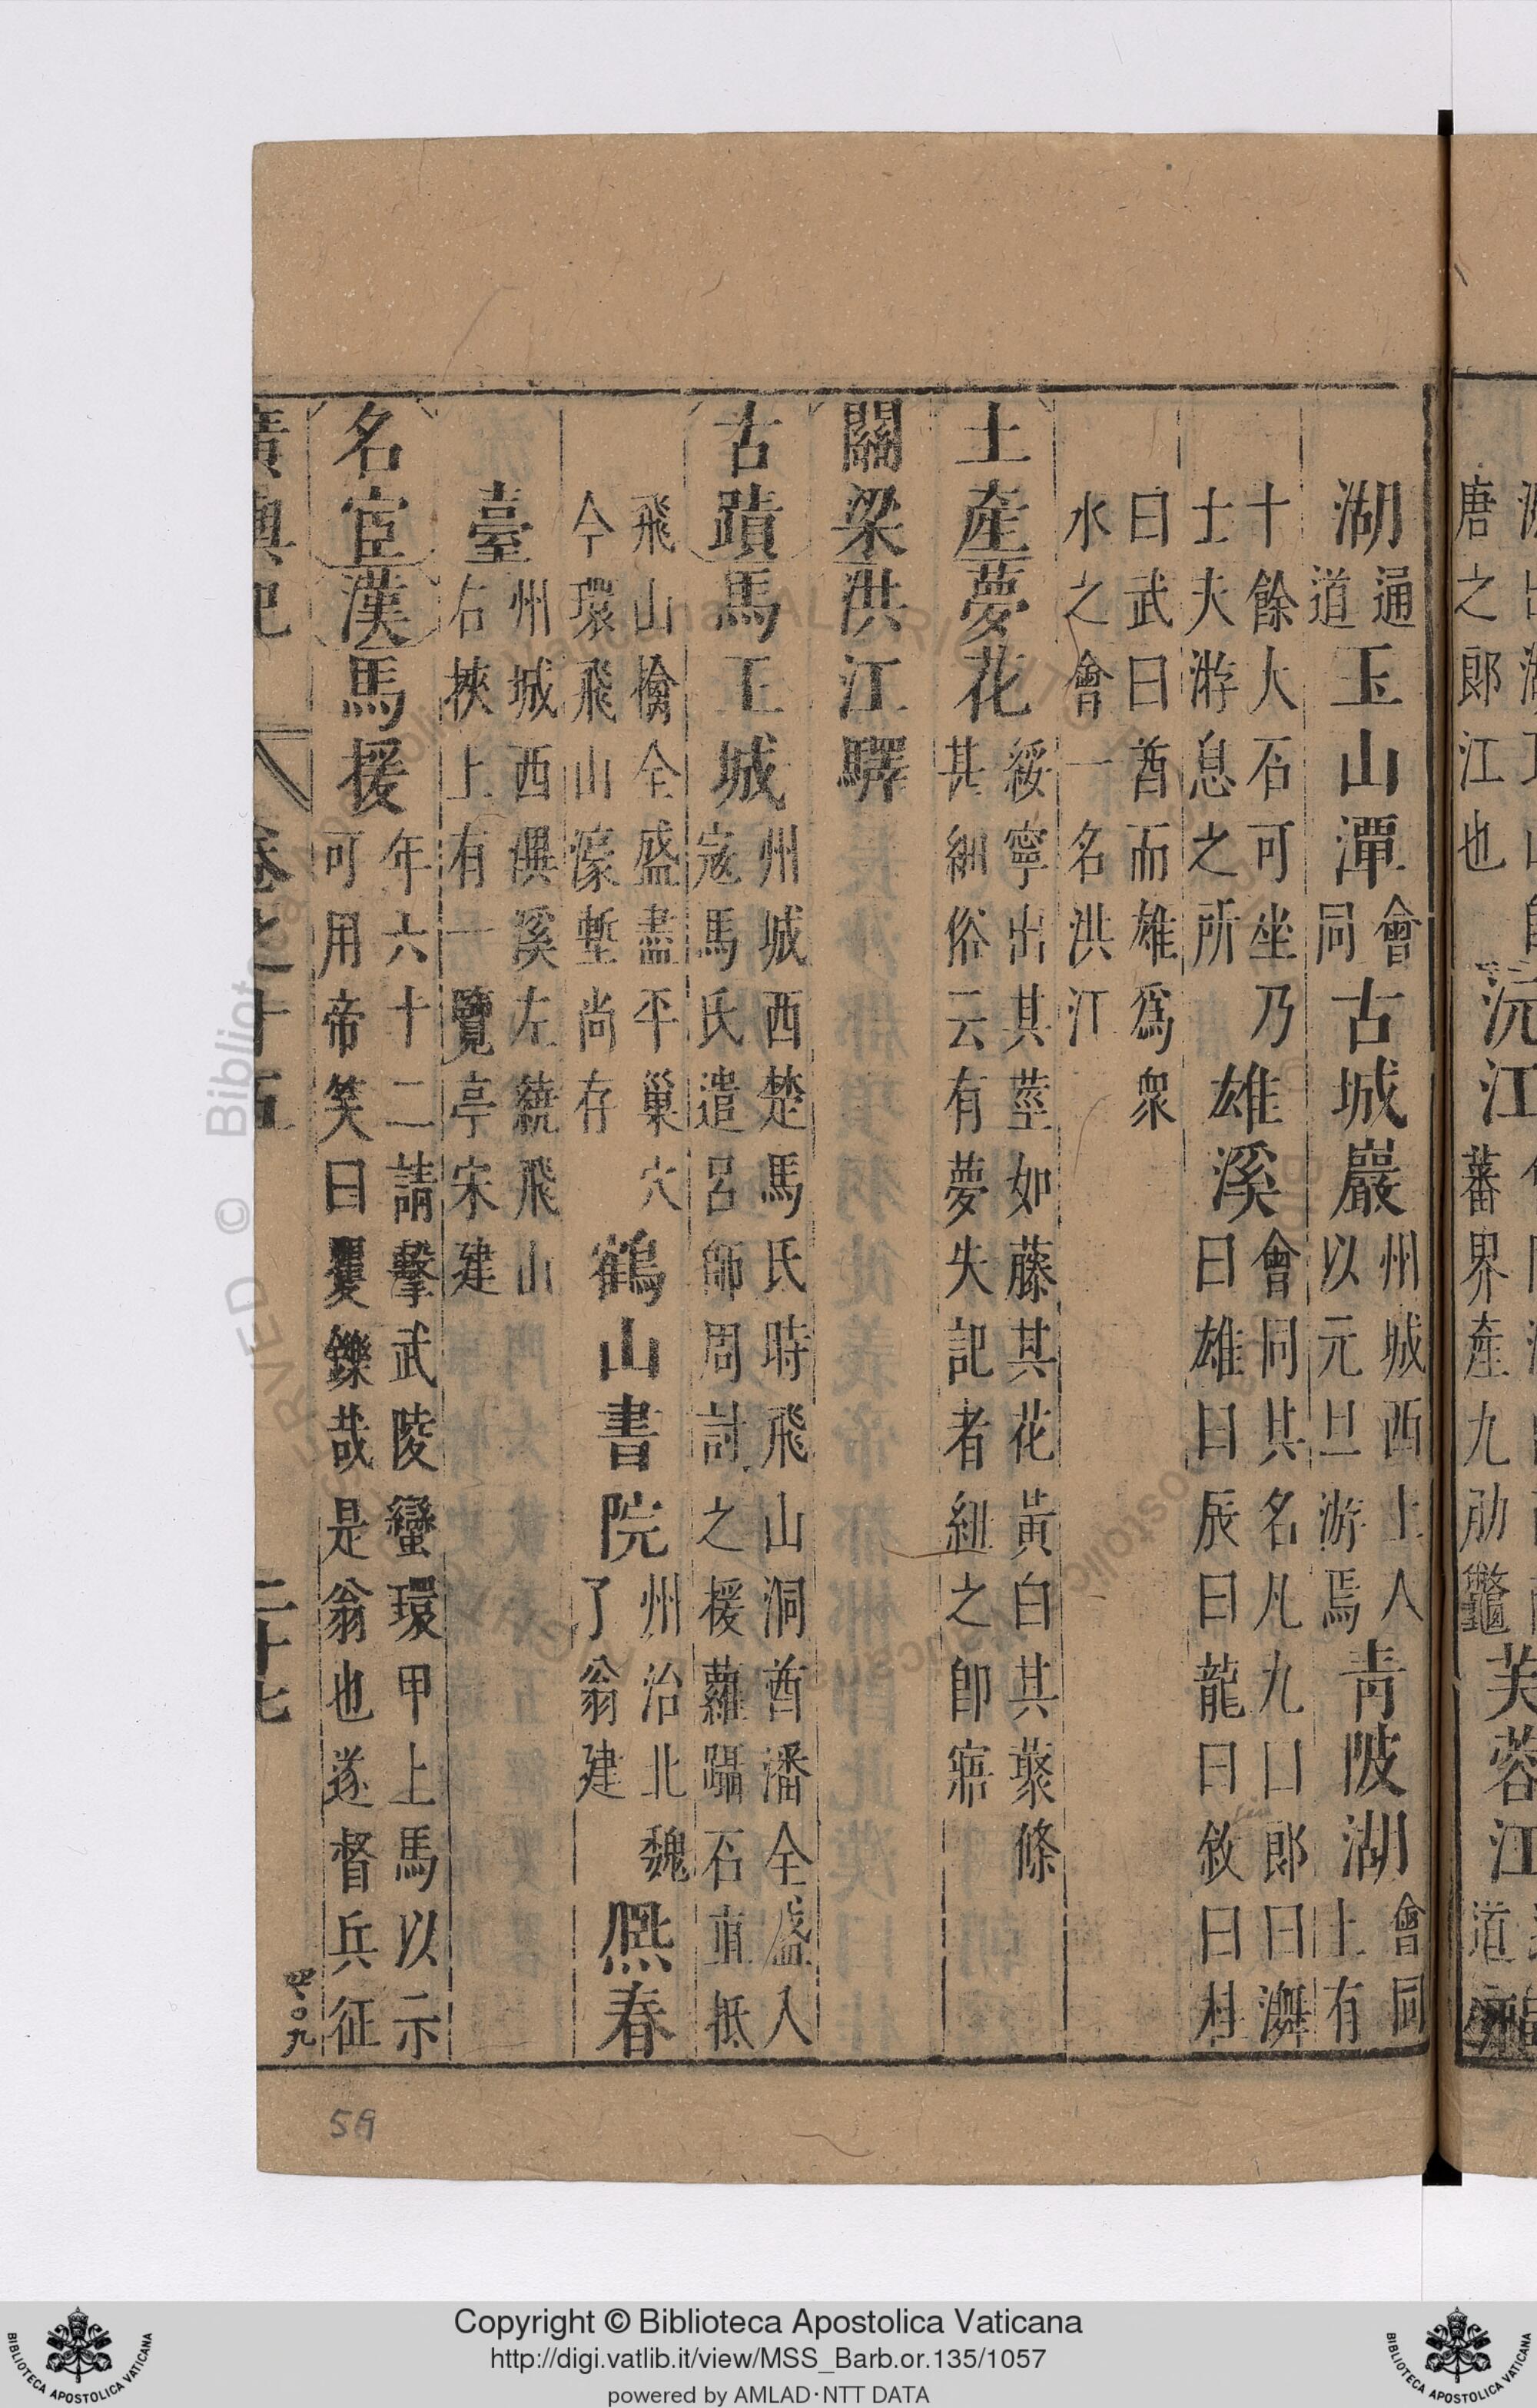 唐之郎江也 沅江 蕃界產九肋鼈 芙蓉江
湖通道玉山潭會同古城巖州城西土人以元旦游焉青陂湖會同土有
十餘大石可坐乃士夫游息之所雄溪會同其名凡九口郎曰㵲曰雄曰辰曰龍曰敘曰
曰武曰酋而雄爲衆水之會一名洪江
土產夢花綏寧出其莖如藤其花黃白其藂條甚細俗云有夢失記者紐之卽寤
關梁洪江驛
古蹟馬王城州城西楚馬氏時飛山洞酋潘全盛入寇馬氏遣呂師周討之援蘿躡石直抵
飛山擒全盛盡平巢穴今環飛山濠塹尚存鶴山書院州治北魏了翁建熈春
臺州城西俱溪左繞飛山右挾上有一覽亭宋建
名宦漢馬援年六十二請擊武陵蠻環甲上馬以示可用帝笑曰矍鑠哉是翁也遂督兵征
廣輿記 卷之十五 二十七
四〇九
59
Copyright © Biblioteca Apostolica Vaticana
http://digi.vatlib.it/view/MSS_Barb.or.135/1057
powered by AMLAD·NTT DATA
BIBLIOTECA APOSTOLICA VATICANA
BIBLIOTECA APOSTOLICA VATICANA